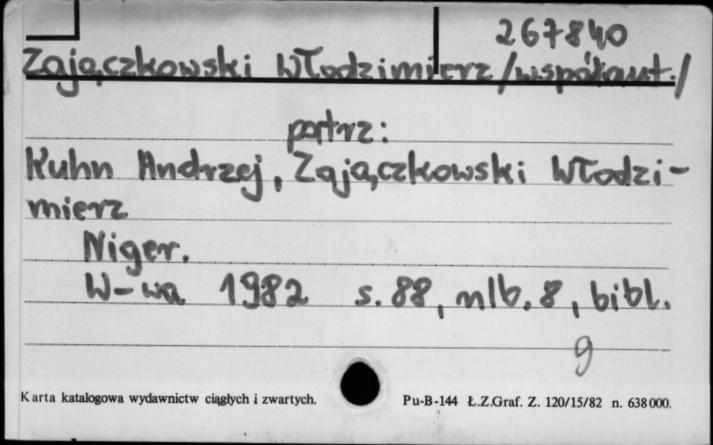 267840
Zajączkowski Włodzimierz /współaut./
patrz:
Kuhn Andrzej, Zajączkowski Włodzi-
mierz
Niger.
W-wa 1982 s. 88, nlb. 8, bibl.
9
Karta katalogowa wydawnictw ciągłych i zwartych. Pu-B-144 Ł.Z.Graf. Z. 120/15/82 n. 638 000.